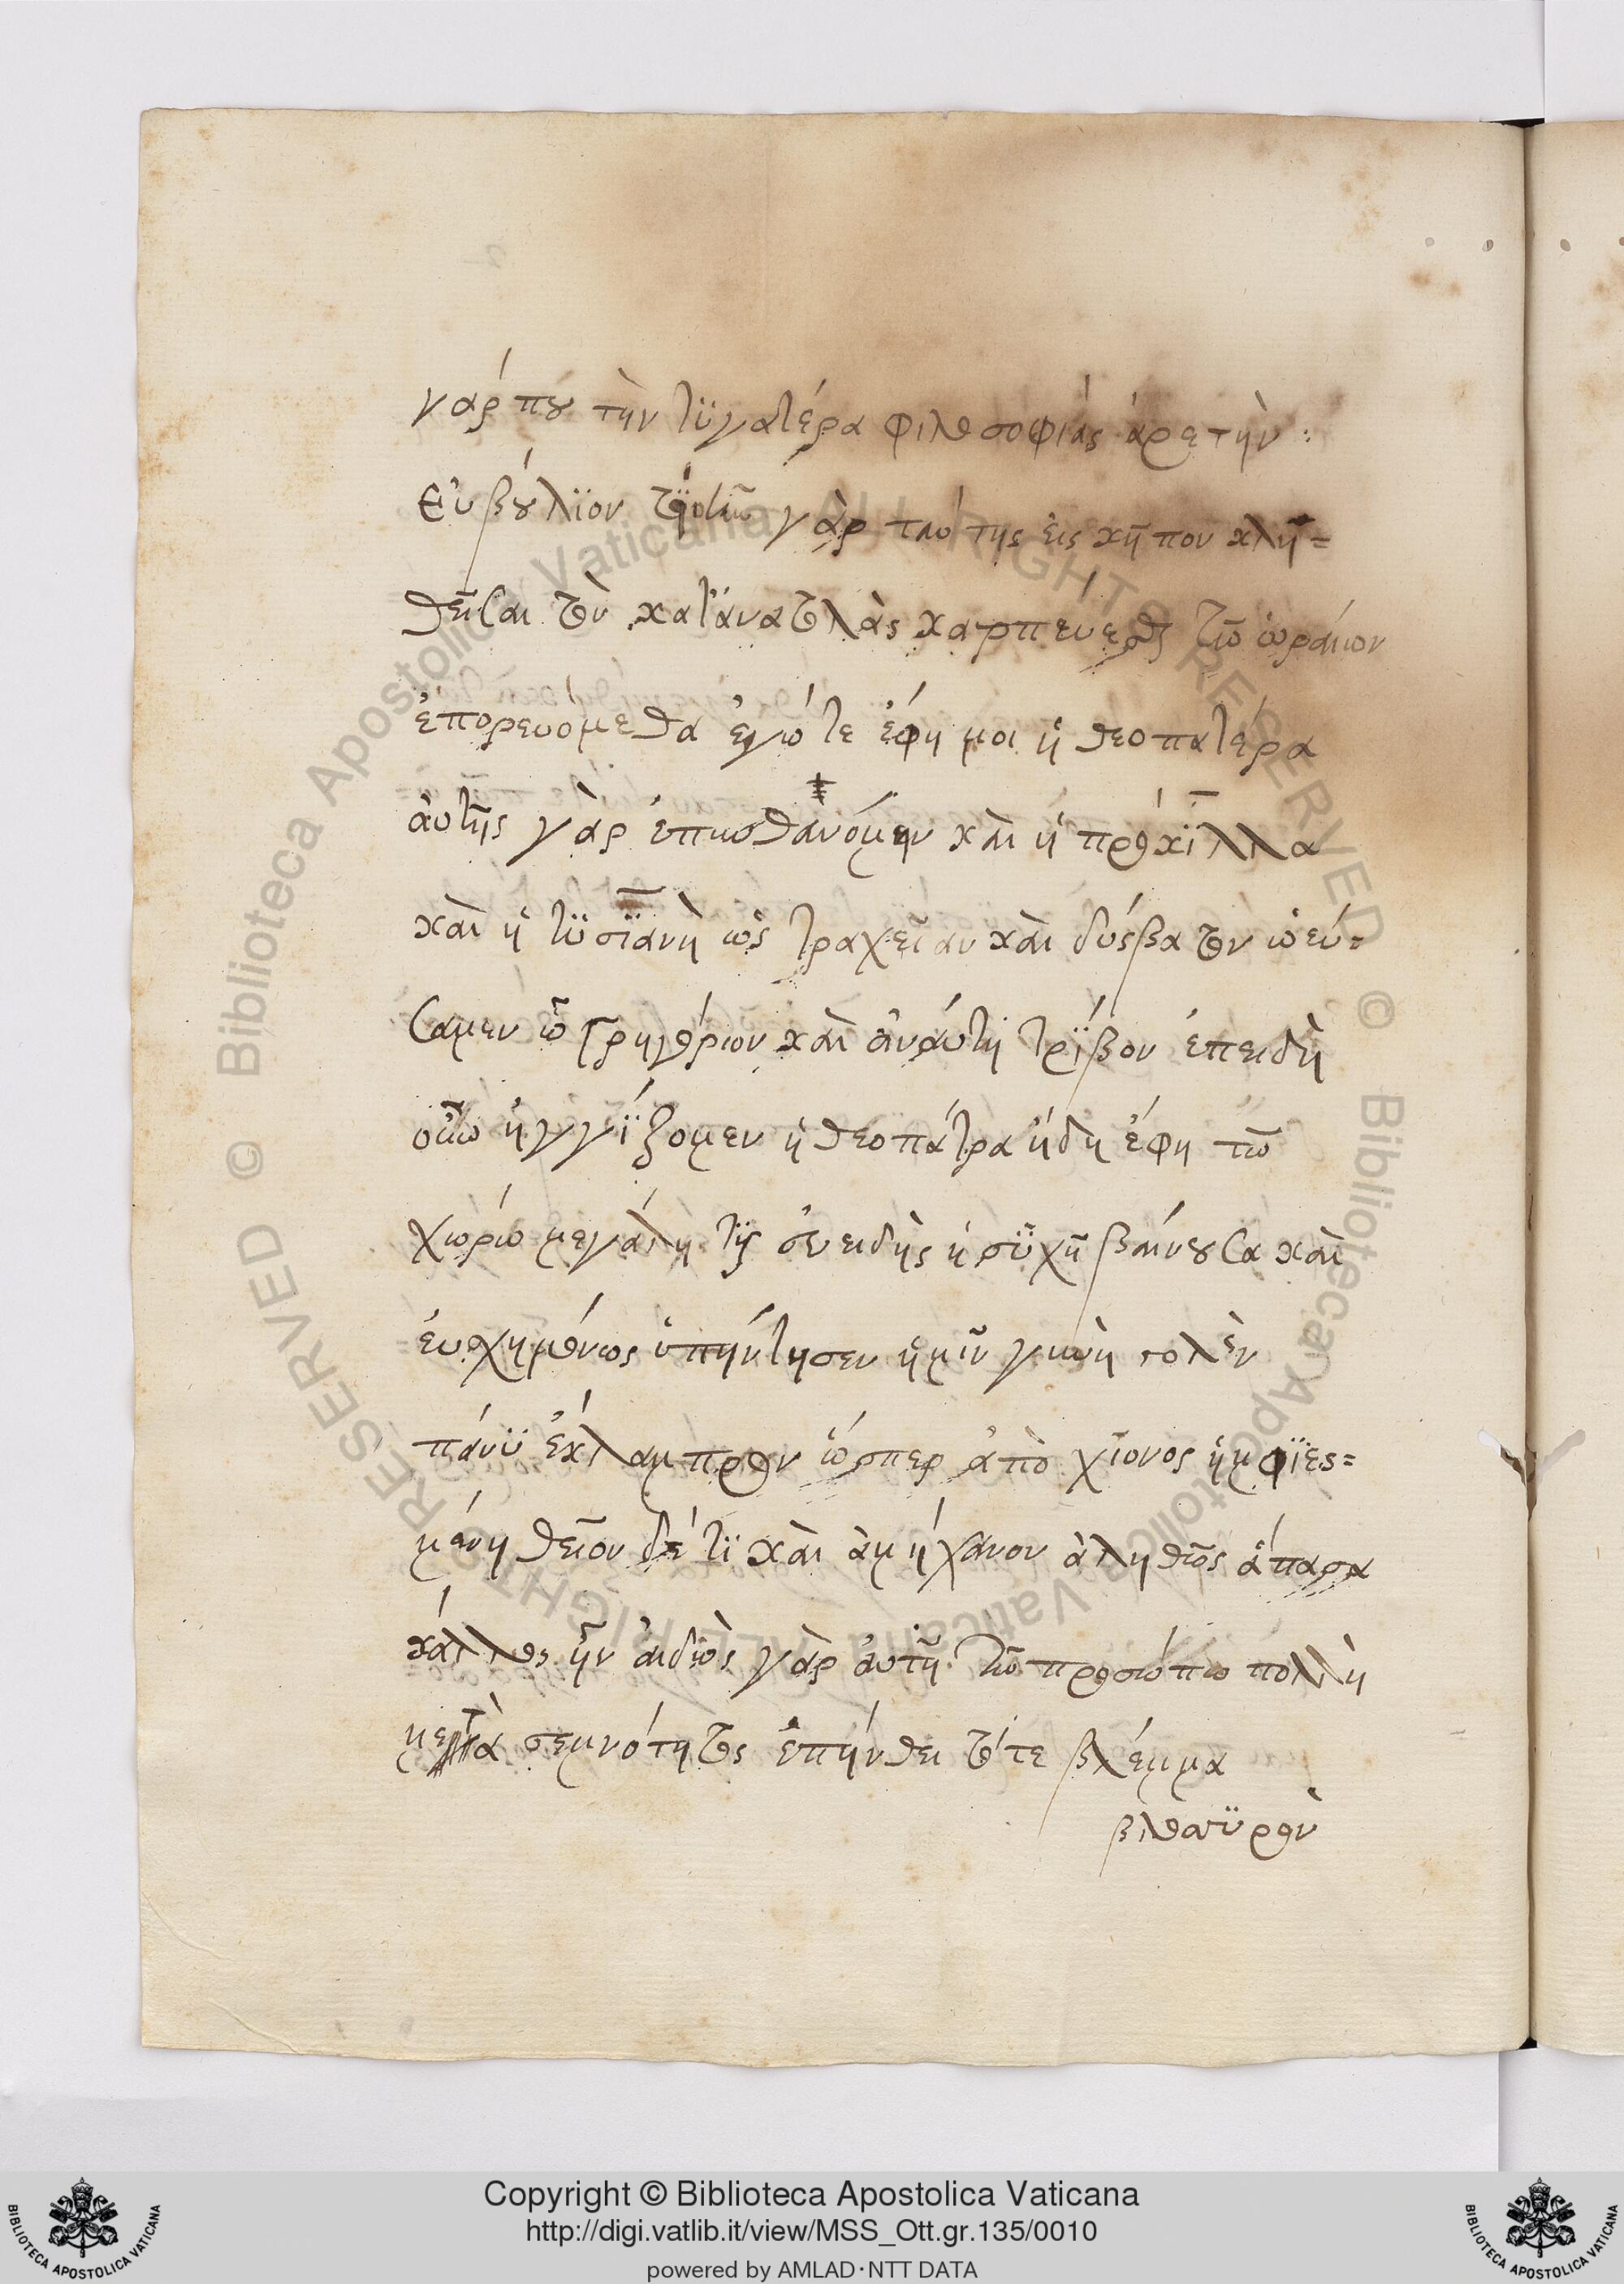 γάρ που τὴν τϋγατέρα φιλοσοφιάς ἀρετὴν:
Εὐβούλϊον γὰρ ταύτης εἰς κῆπον κλη=
θεῖσαι τὸν κατ' ἀνατολὰς καρπεύεσθαι τῶ ὡράιον
ἐπορευόμεθα ἐγώ τε ἔφη μοι ἡ θεοπατέρα
ἀυτῆς γὰρ ἐπυνθανόμην καὶ ἡ προκΐλλα
καὶ ἡ τϋσϊανὴ ὡς τραχεῖαν καὶ δύσβατον ὡεύ=
σαμεν ὦ Γρηγόριον καὶ ἀνάντη τρΐβον ἐπειδὴ
οὖν ἠγγΐζομεν ἡ θεοπάτρα ἤδη ἔφη τῶ
χωρίω μεγάλη τϊς ἐυειδὴς ἡσϋχῆ βαίνουσα καὶ
ἐυσχημόνως ὑπήντησεν ἡμῖν γυνὴ στολὲν
πάνϋ ἔκλαμπρον ὥσπερ ἀπὸ χϊονος ἠμφϊες=
μένη θεῖον δέ τϊ καὶ ἀμήχανον ἀληθῶς ἅπασα
κάλλος ἦν ἀιδὼς γὰρ ἀυτῆ τῶ προσώπω πολλὴ
μετὰ σεμνότητος ἐπήνθει τότε βλέμμα
βλοσϋρὸν
Copyright © Biblioteca Apostolica Vaticana
http://digi.vatlib.it/view/MSS_Ott.gr.135/0010
powered by AMLAD·NTT DATA
BIBLIOTECA APOSTOLICA VATICANA
BIBLIOTECA APOSTOLICA VATICANA
© Biblioteca Apostolica Vaticana ALL RIGHTS RESERVED
© Biblioteca Apostolica Vaticana ALL RIGHTS RESERVED